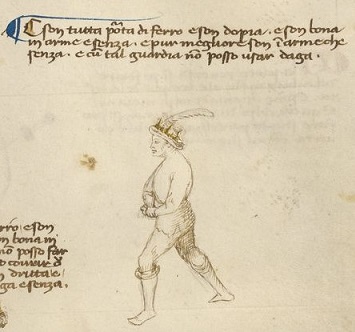 E son tutta pōta di ferro e son dopia . e son bona
in arme e senza . e pur megliore son ī arme che
senza . e cū tal guardia nō posso usar daga .
erro . e son
n bona in
nō posso far
d
n dritta e
ga e senza .